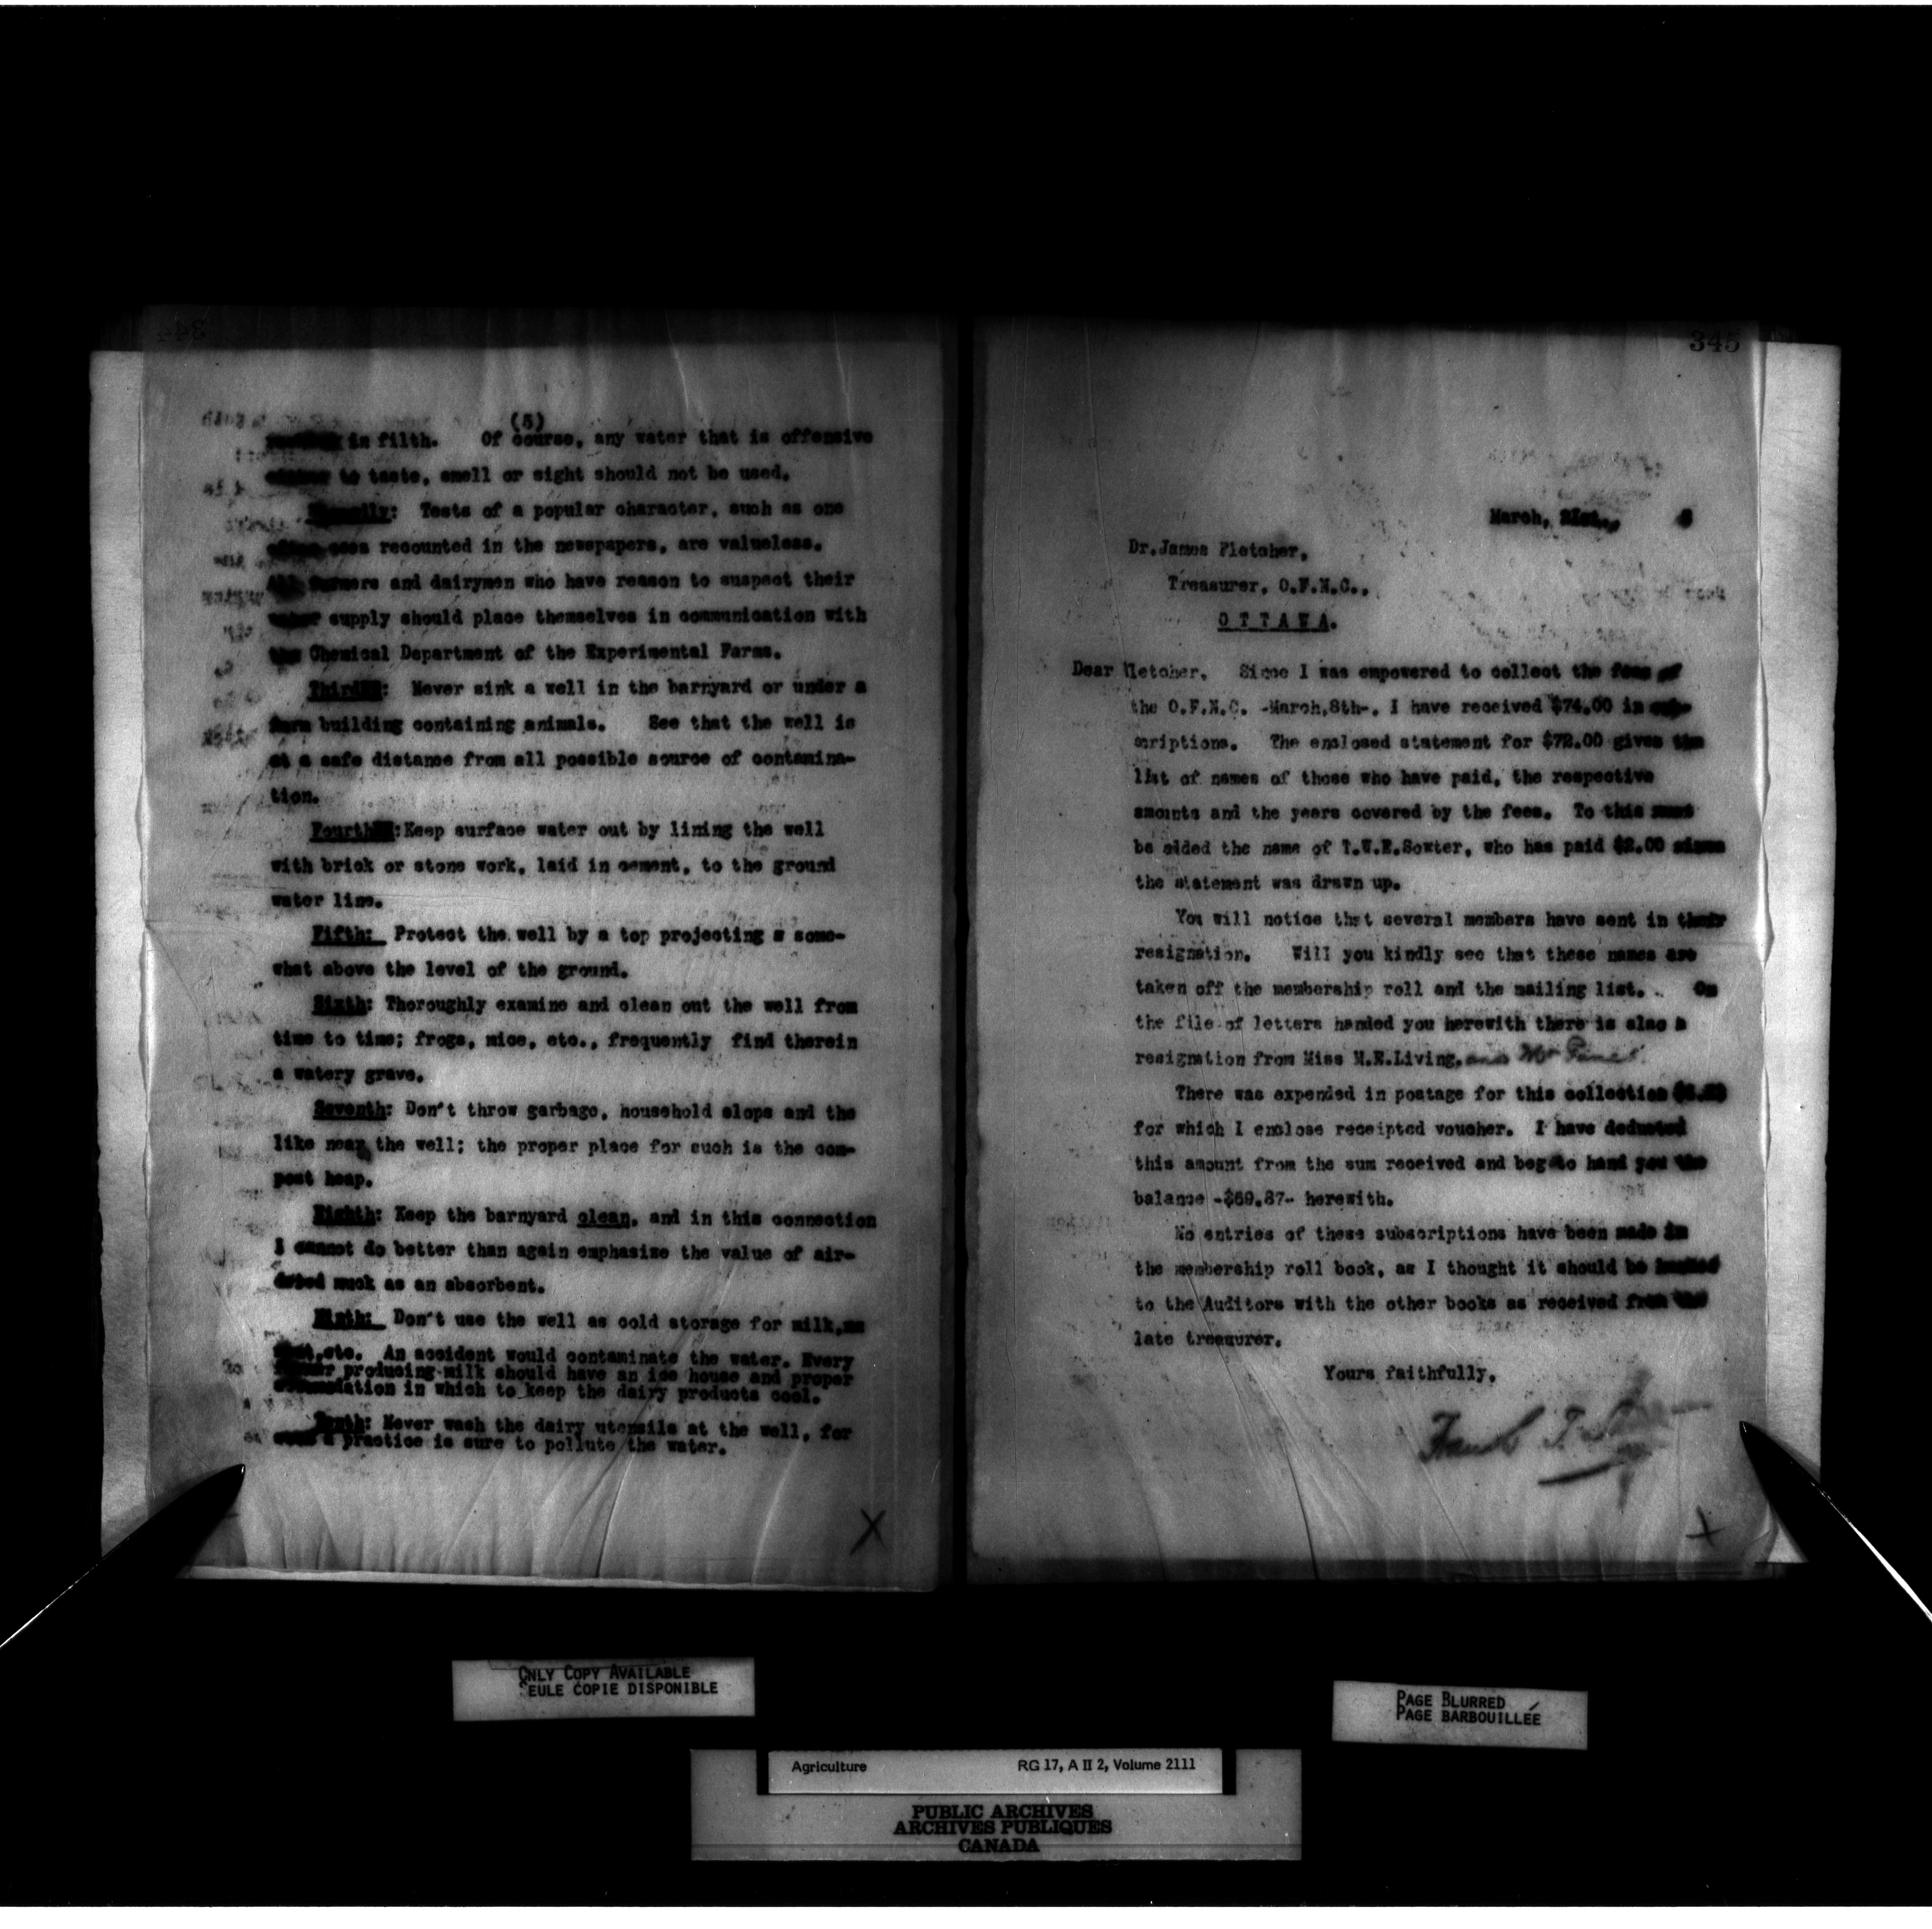 (5)
in filth. Of course, any water that is offensive
to taste, smell or sight should not be used.
Tests of a popular character, such as one
recounted in the newspapers, are valueless.
farmers and dairymen who have reason to suspect their
supply should place themselves in communication with
the Chemical Department of the Experimental Farms.
Never sink a well in the barnyard or under a
building containing animals. See that the well is
at a safe distance from all possible source of contamina-
tion.
Keep surface water out by lining the well
with brick or stone work, laid in cement, to the ground
water line.
Fifth: Protect the well by a top projecting a some-
what above the level of the ground.
Sixth: Thoroughly examine and clean out the well from
time to time; frogs, mice, etc., frequently find therein
a watery grave.
Seventh: Don't throw garbage, household slops and the
like near the well; the proper place for such is the com-
post heap.
Eighth: Keep the barnyard clean, and in this connection
I cannot do better than again emphasize the value of air-
dried muck as an absorbent.
Don't use the well as cold storage for milk,
etc. An accident would contaminate the water. Every
producing milk should have an ice house and proper
in which to keep the dairy products cool.
Tenth: Never wash the dairy utensils at the well, for
a practice is sure to pollute the water.
345
March,
Dr.James Fletcher,
Treasurer, O.F.N.C.,
OTTAWA.
Dear Fletcher, Since I was empowered to collect the fees of
the O.F.N.C. -March,8th-, I have received $74.00 in
scriptions. The enclosed statement for $72.00 gives the
list of names of those who have paid, the respective
amounts and the years covered by the fees. To this must
be added the name of T.W.E.Sowter, who has paid $2.00 since
the statement was drawn up.
You will notice that several members have sent in their
resignation. Will you kindly see that these names are
taken off the membership roll and the mailing list. On
the file of letters handed you herewith there is also a
resignation from Miss M.E.Living, and Mr
There was expended in postage for this collection
for which I enclose receipted voucher. I have deducted
this amount from the sum received and beg to hand you the
balance -$69.87- herewith.
No entries of these subscriptions have been made in
the membership roll book, as I thought it should be handed
to the Auditors with the other books as received from the
late treasurer.
Yours faithfully,
Frank T. Sh
ONLY COPY AVAILABLE
SEULE COPIE DISPONIBLE
PAGE BLURRED
PAGE BARBOUILLÉE
Agriculture RG 17, A II 2, Volume 2111
PUBLIC ARCHIVES
ARCHIVES PUBLIQUES
CANADA